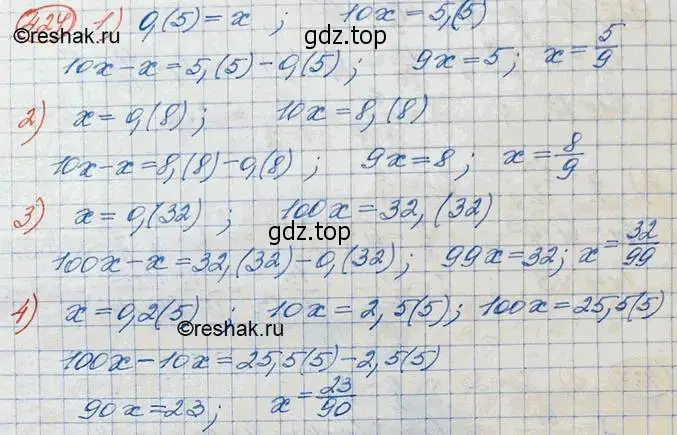 424 1) 0,(5)=x ; 10x=5,(5)
©reshak.ru
gdz.top
10x-x=5,(5)-0,(5); 9x=5; x=5/9
2) x=0,(8); 10x=8,(8)
10x-x=8,(8)-0,(8) ; 9x=8 ; x=8/9
3) x=0,(32) ; 100x=32,(32)
gdz.top
100x-x=32,(32)-0,(32); 99x=32; x=32/99
4) x=0,2(5) ; 10x=2,5(5); 100x=25,5(5)
©reshak.ru
gdz.top
100x-10x=25,5(5)-2,5(5)
90x=23; x=23/90